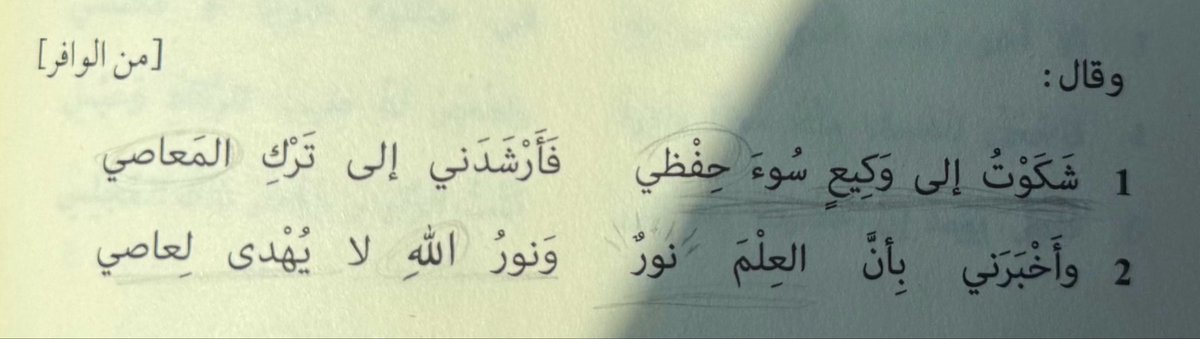 وقال:
[من الوافر]
1 شَكَوْتُ إلى وَكِيعٍ سُوءَ حِفْظي فَأَرْشَدَني إلى تَرْكِ المَعاصي
2 وأَخْبَرَني بِأنَّ العِلْمَ نورٌ وَنورُ اللهِ لا يُهْدى لِعاصي